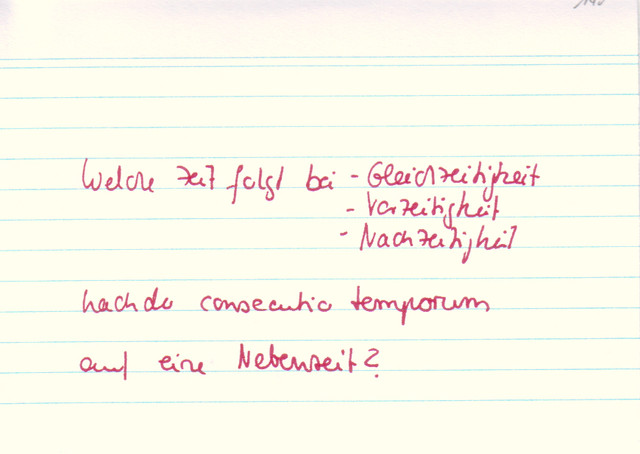 Welche Zeit folgt bei - Gleichzeitigkeit
- Vorzeitigkeit
- Nachzeitigkeit
nach der consecutio temporum
auf eine Nebenzeit?